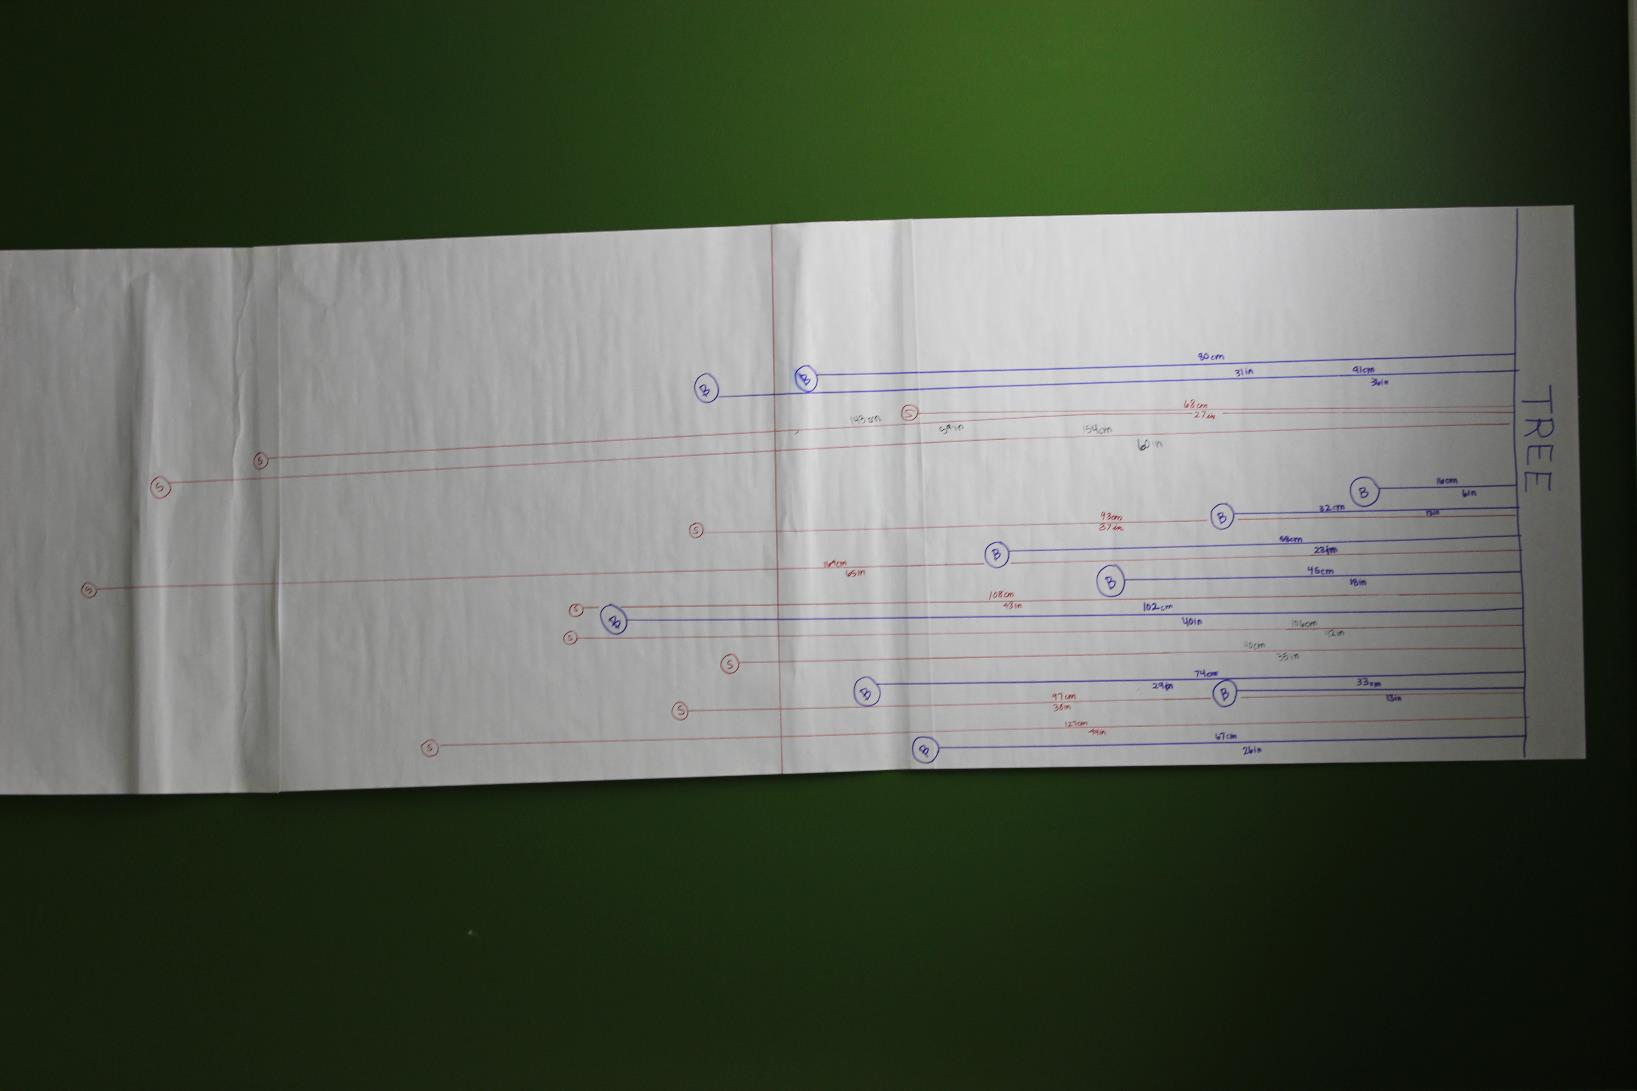 80cm
B
B
31in
91cm
36in
S
68cm
27in
143cm
154cm
60in
S
S
B
16cm
6in
B
32cm
S
93cm
37in
B
58cm
23in
S
65in
B
45cm
18in
S
108cm
43in
B
102cm
40in
S
106cm
42in
S
38in
B
74cm
29in
B
33cm
13in
S
97cm
38in
S
127cm
49in
B
67cm
26in
TREE